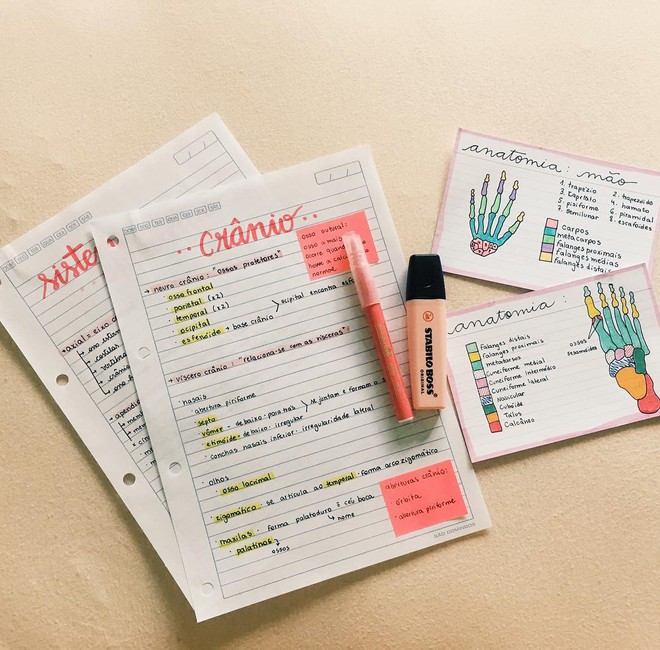 siste
axial: eixo d
apend
crânio
osso sutural:
osso a mais q
ocorre quand
houve a calci
normal
→ neuro crânio: "ossos protetores"
· osso frontal
· parietal (x2)
· temporal (x2)
· ocipital
· esfenóide → base crânio
ocipital encontra esf
→ víscero crânio: "relaciona-se com as vísceras"
· nasais
· abertura piriforme
· septo
· vômer - debaixo paranas
· etimóide - debaixo: irregular
se juntam e formam o s
· conchas nasais inferior: irregularidade lateral
· olhos
· osso lacrimal
· zigomático - se articula ao temporal - forma arco zigomático
· maxilas - forma palatoduro → céu boca
↳ nome
· palatinos
ossos
aberturas crânio:
· órbita
· abertura piriforme
SÃO DOMINGOS
STABILO BOSS
ORIGINAL
anatomia: mão
1. trapézio
2. trapezoide
3. capitato
4. hamato
5. pisiforme
6. piramidal
7. semilunar
8. escafoides
carpos
metacarpos
falanges proximais
falanges médias
falanges distais
anatomia:
Falanges distais
Falanges proximais
metatarsos
Cuneiforme medial
Cuneiforme intermédio
Cuneiforme lateral
Navicular
Cuboide
Talus
Calcâneo
ossos
sesamoides